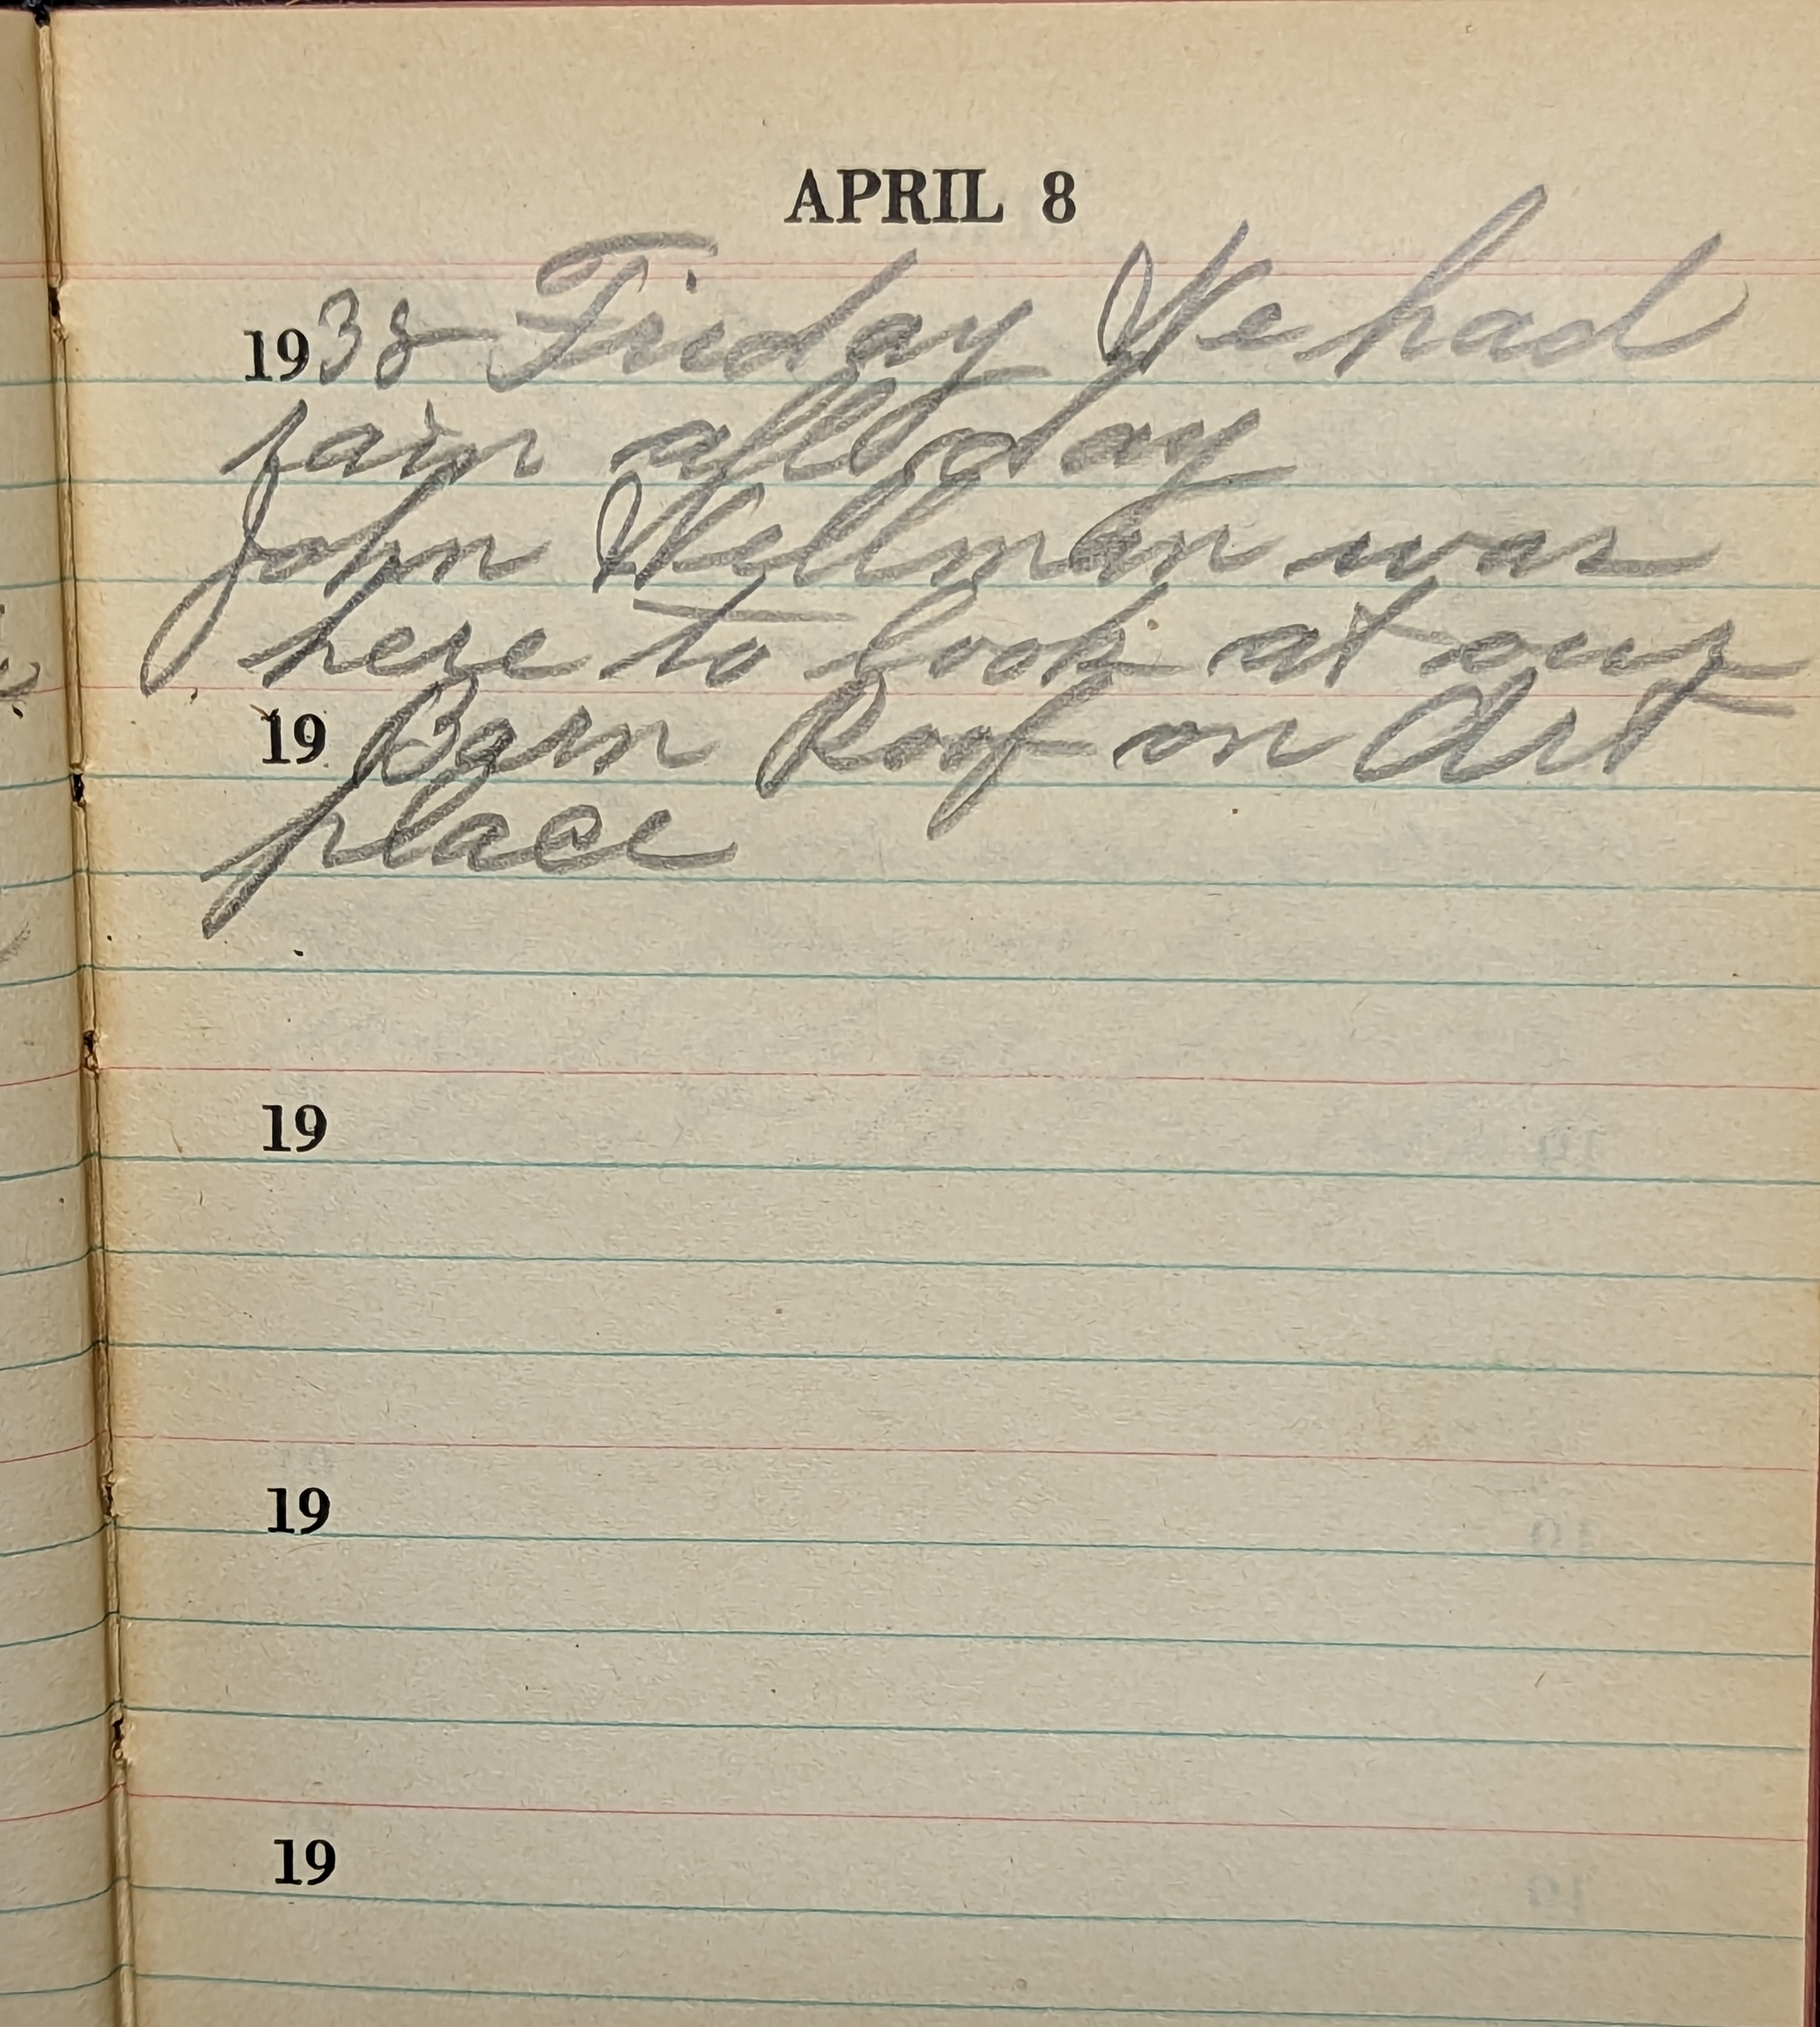 APRIL 8
1938 Friday We had
rain all day
John Wellman was
here to look at our
19 Barn Roof on Art
place
19
19
19